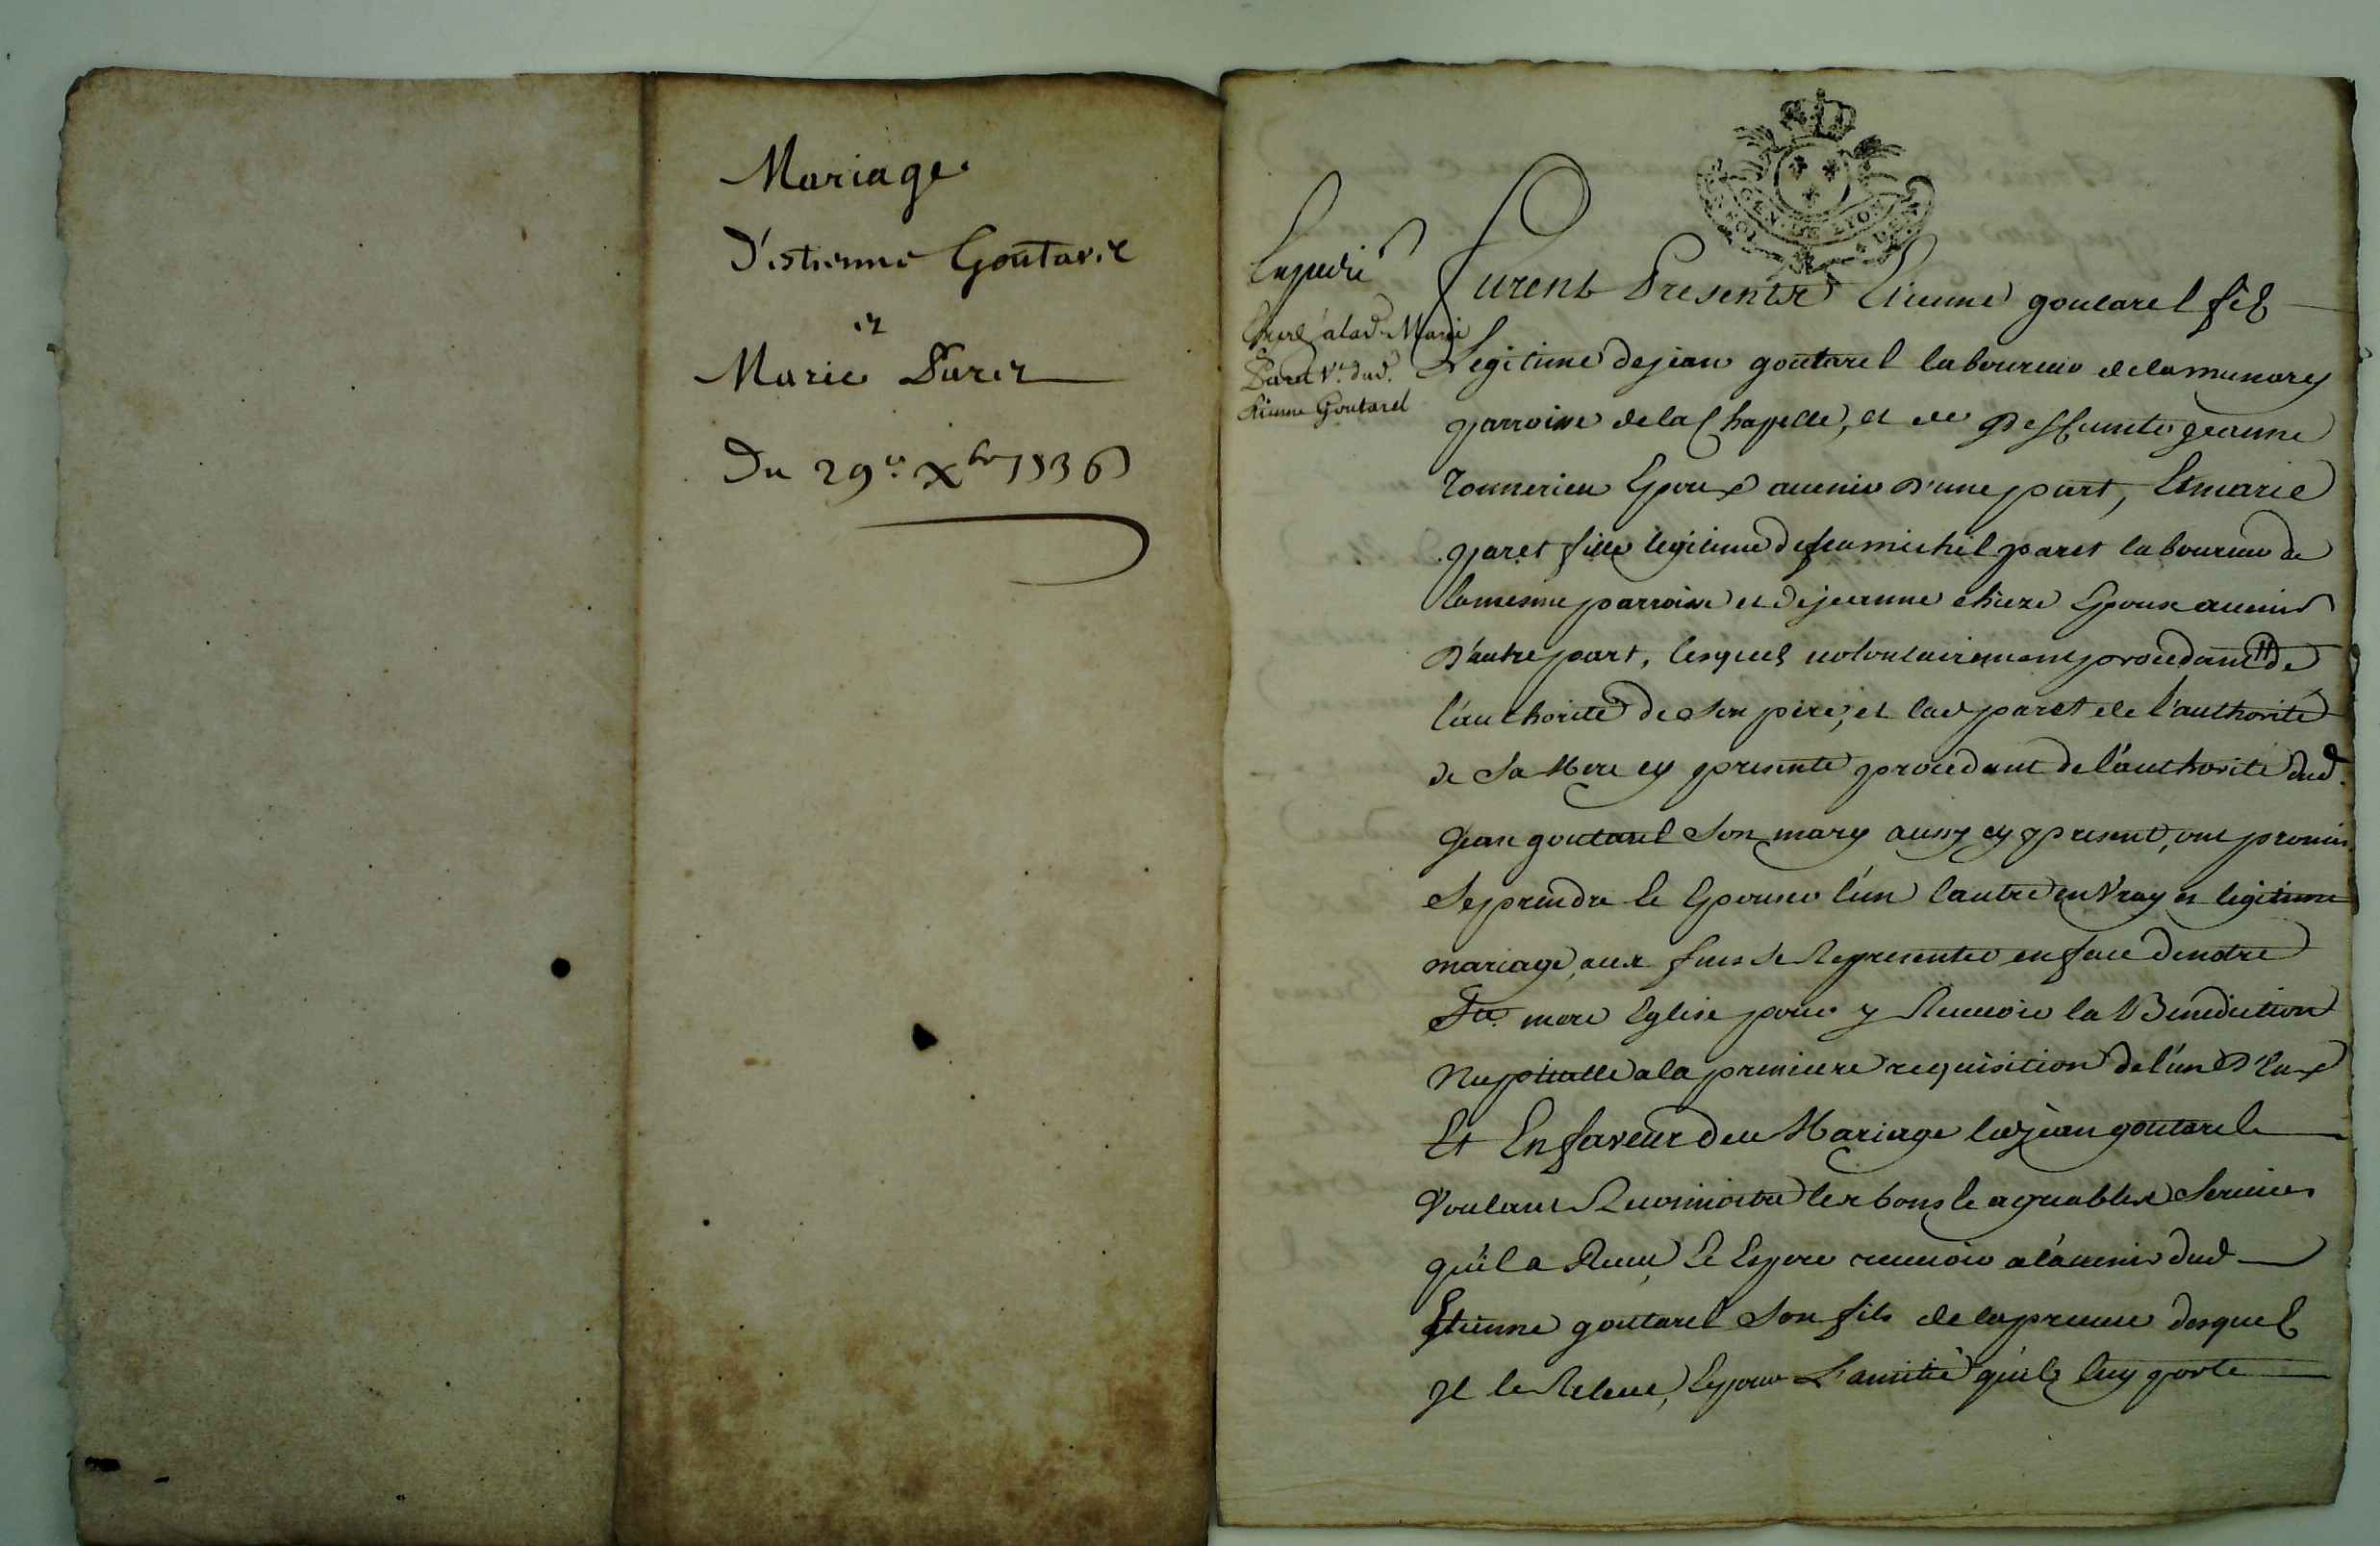 Mariage
D'estienne Goutarel
et
Marie Paret
Du 29e Xbre 1736
Expedié
GEN DE LYON
Furent Presents Etienne goutarel fils
aladte Marie
Paret Ve dud.
Etienne Goutarel
Legitime de jean goutarel laboureur de lamunary
parroisse de la Chapelle, et de deffunte jeanne
Epoux avenir d'une part, Et marie
paret fille legitime de feu michel paret laboureur de
la mesme parroisse et de jeanne Epouse avenir
D'autre part, lesquels volontairement procedant de
l'authorité de son pere, et lad paret de l'authorité
de Sa Mere cy presente procedant de l'authorité dud.
Jean goutarel Son mary aussy cy present, ont promis
Se prendre Et Epouser l'un l'autre en vray et legitime
mariage, aux fins Se Representer en face de notre
Ste mere Eglise pour y Recevoir la Benediction
Nuptialle a la premiere requisition de l'un D'Eux
Et En faveur du Mariage led jean goutarel
Voulant Reconnoitre les bons Et agreables Services
qu'il a Receu Et Espere recevoir a l'avenir dud
Etienne goutarel Son fils de la preuve desquels
Il le Releve, Et pour L'amitié qu'il luy porte